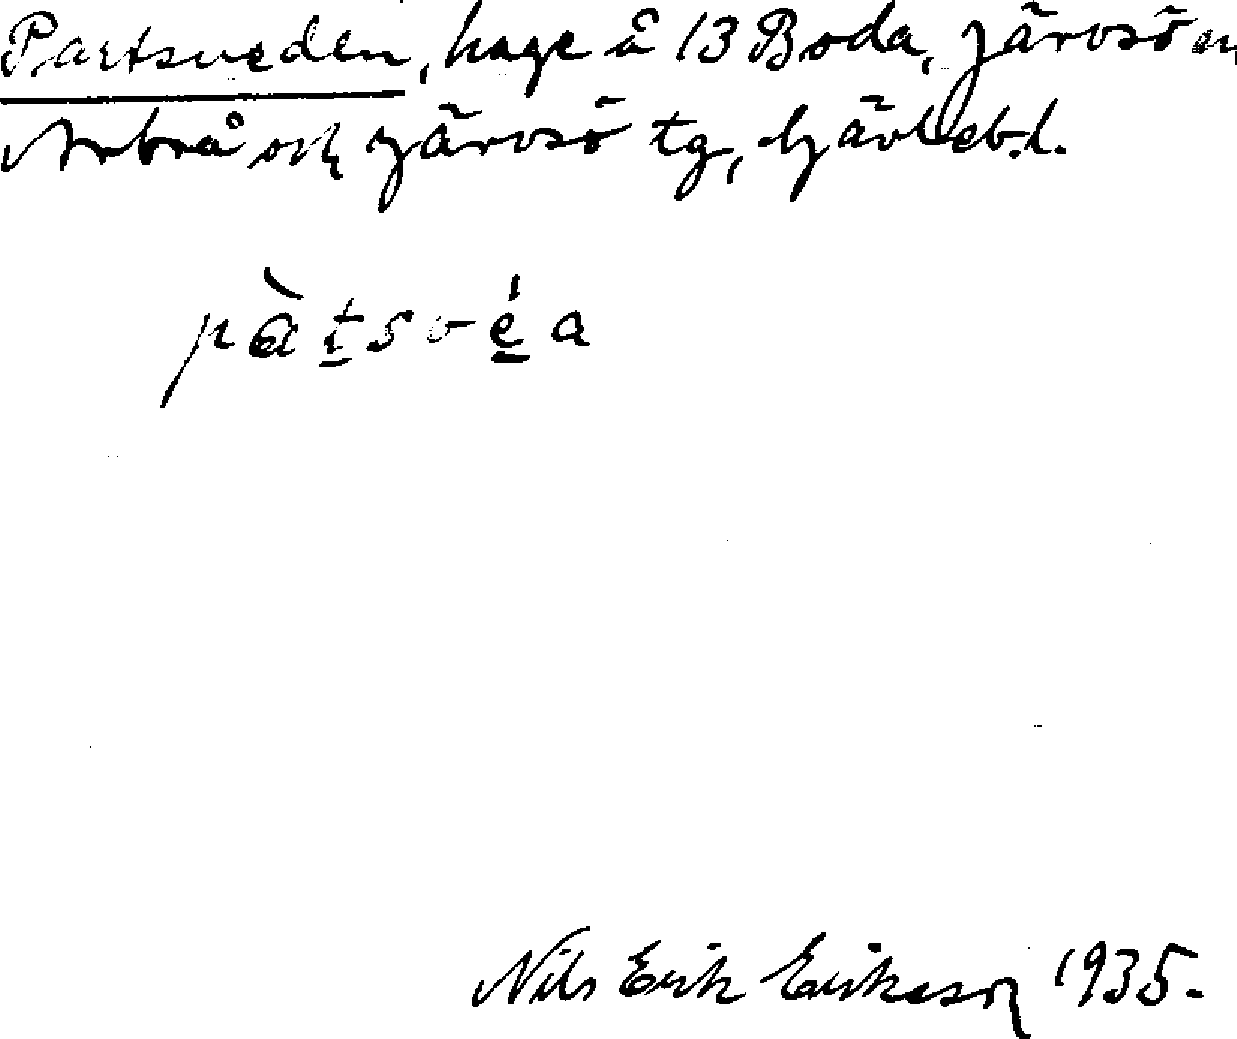 Partsveden, hage å 13 Boda, Järvsö sn
Arbrå och Järvsö tg, Gävleb.l.
pàtsvéa
Nils Erik Eriksson 1935.